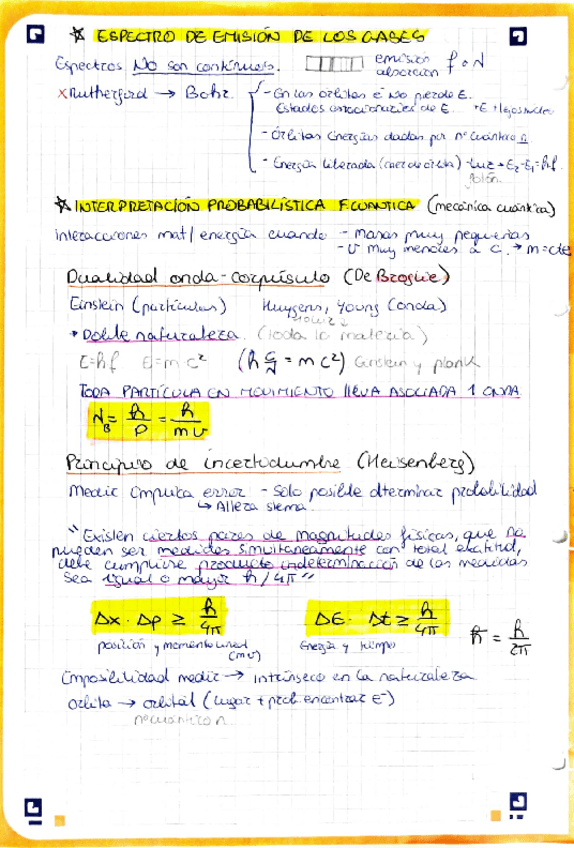 * ESPECTRO DE EMISIÓN DE LOS GASES
Espectros No son continuos. emisión absorción f o λ
x Rutherford → Bohr.
- En las órbitas e⁻ no pierde E.
Estados estacionarios de E. +E + lejos núcleo
- Órbitas Energías dadas por nº cuántico n
- Energía liberada (caer de órbita) - Luz → E₂-E₁=h.f.
fotón.
* INTERPRETACIÓN PROBABILÍSTICA F.CUÁNTICA (mecánica cuántica)
interacciones mat/energía cuando - masas muy pequeñas
- v muy menores a c. → m=cte
Dualidad onda-corpúsculo (De Broglie)
Einstein (partículas) Huygens, Young (onda)
* Doble naturaleza. (toda la materia)
E=hf E=mc² (h c/λ = mc²) Einstein y plank
TODA PARTÍCULA EN MOVIMIENTO lleva ASOCIADA 1 ONDA
λ_B = h/P = h/mv
Principio de incertidumbre (Heisenberg)
Medir implica error - Sólo posible dterminar probabilidad
↳ Altera stema.
"Existen ciertos pares de magnitudes físicas, que no
pueden ser medidas simultaneamente con total exactitud,
debe cumplirse producto indeterminación de las medidas
sea igual o mayor h/4π"
Δx · Δp ≥ h/4π ΔE · Δt ≥ h/4π
posición y momento lineal (mv) Energía y tiempo ħ = h/2π
Imposibilidad medir → intrínseco en la naturaleza
Orbita → orbital (lugar + prob encontrar e⁻)
nº cuántico n.